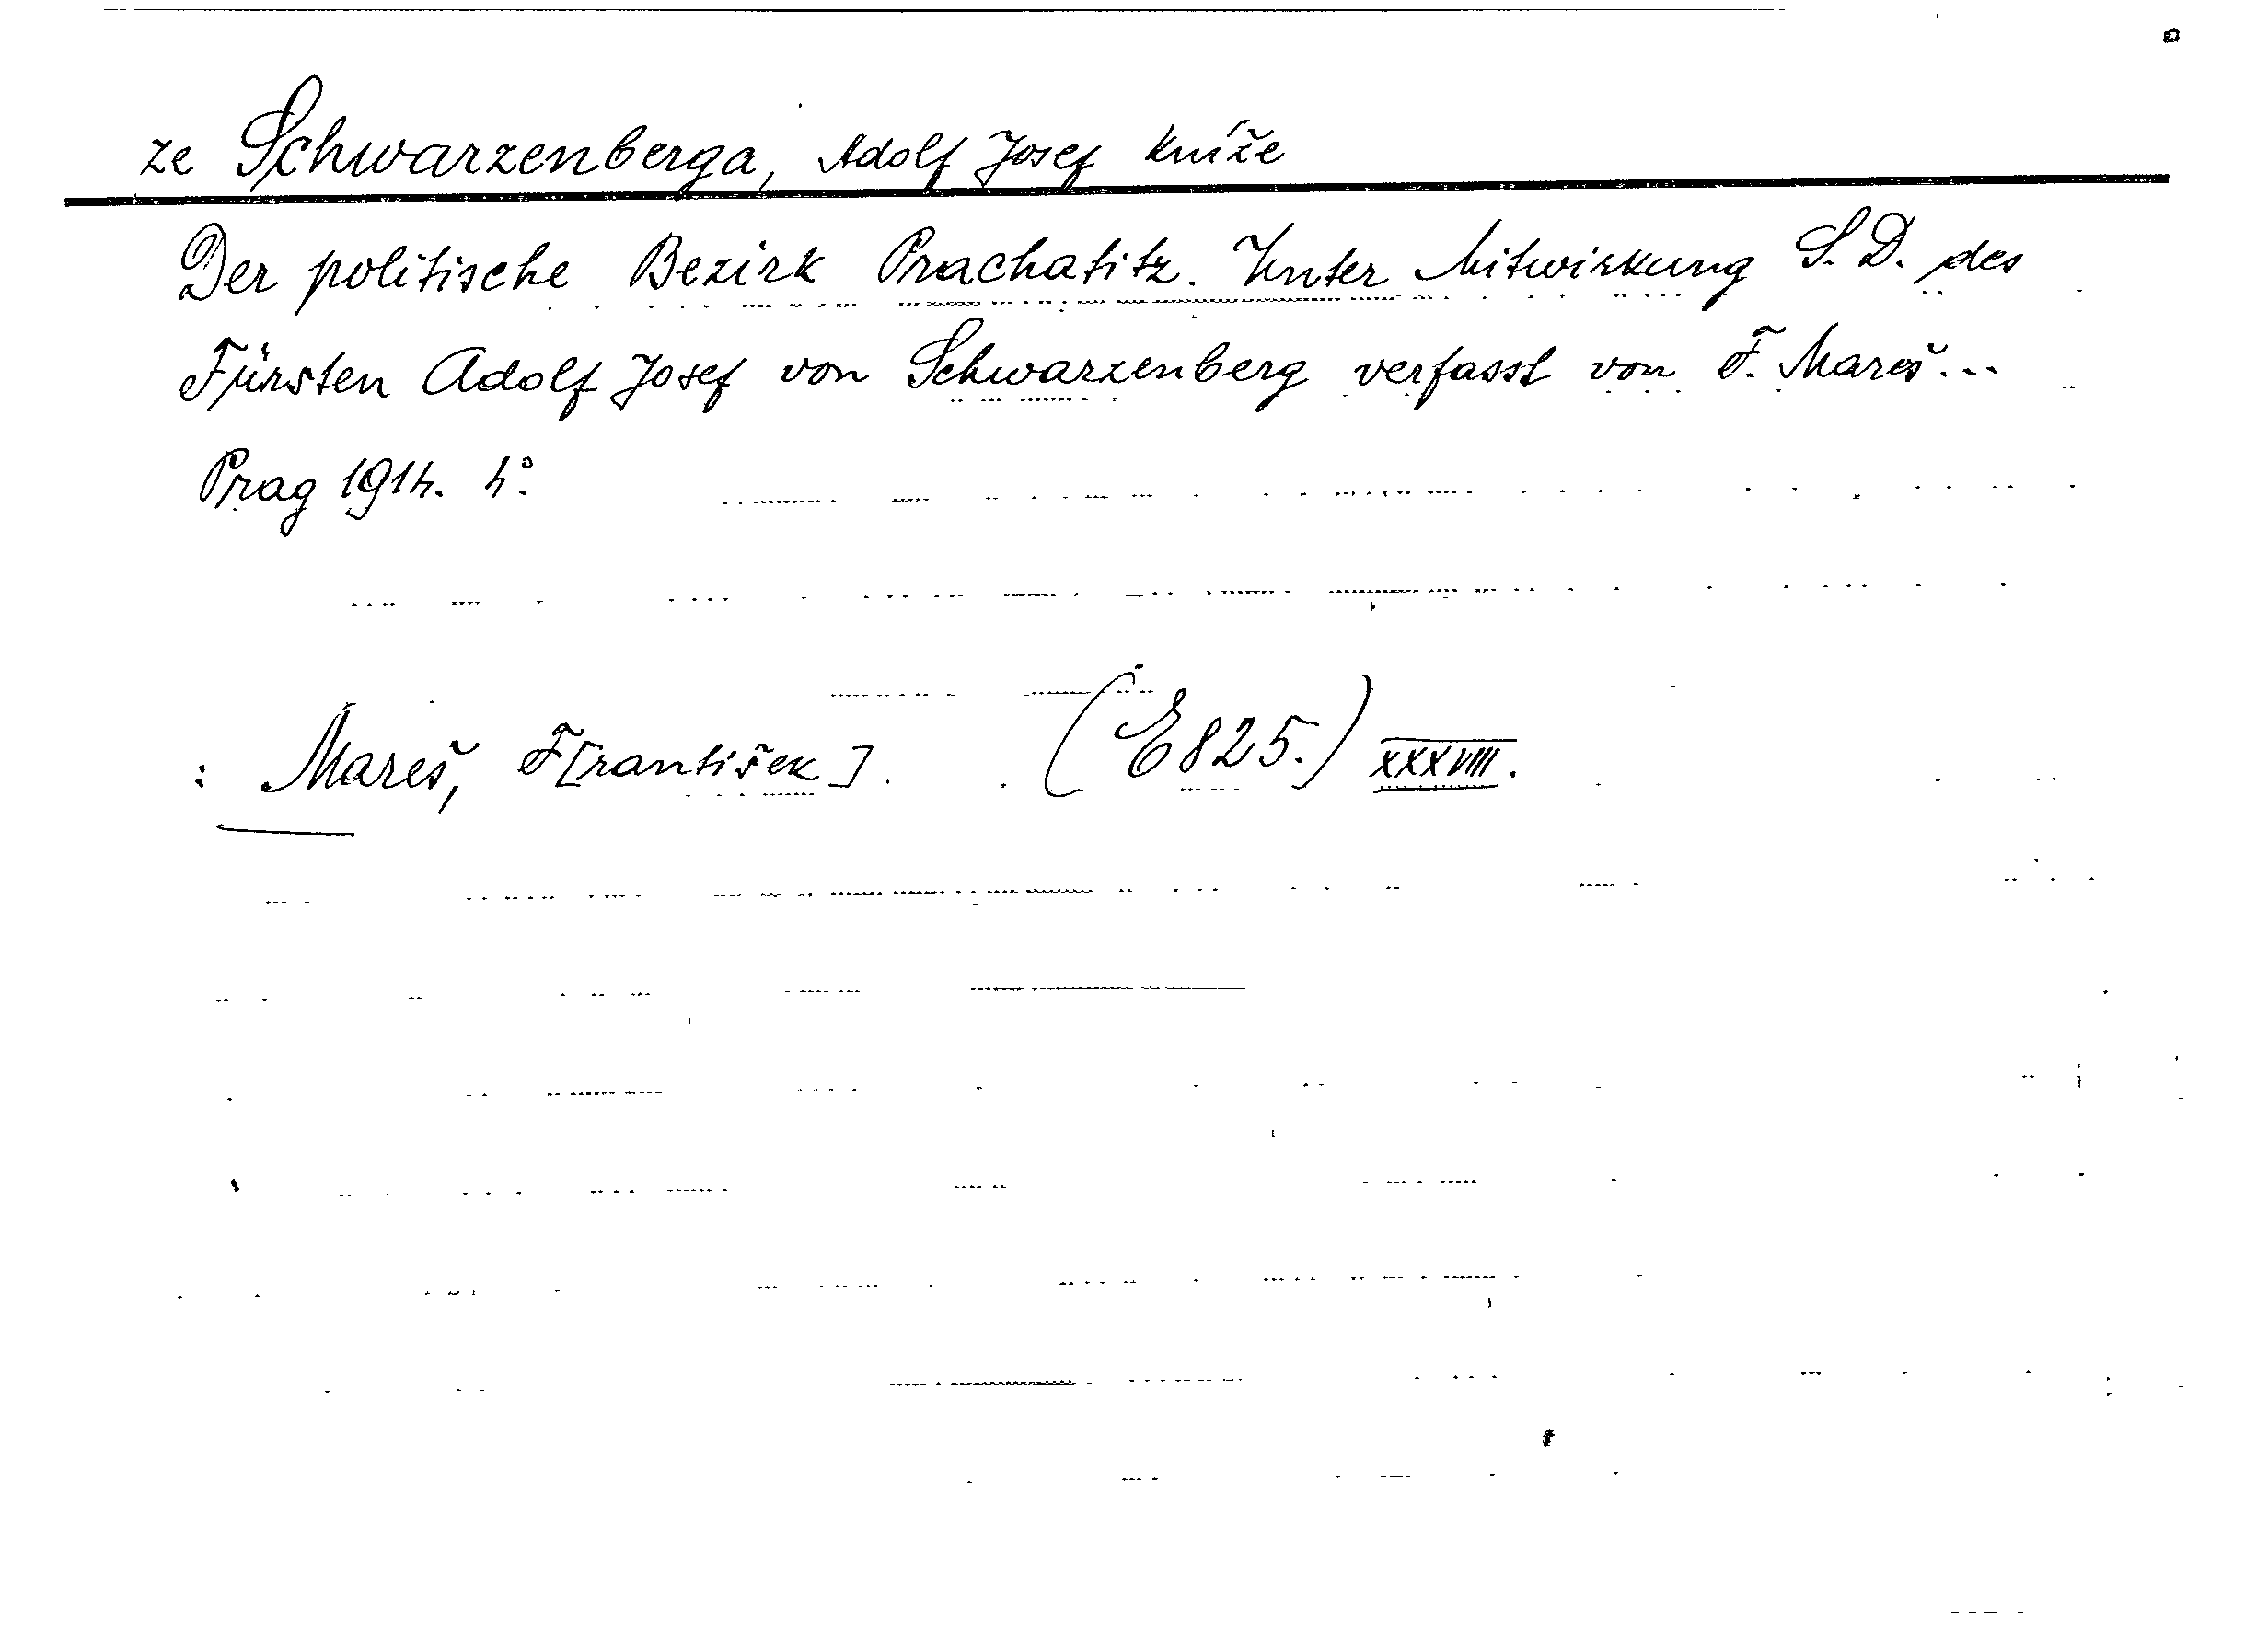 ze Schwarzenberga, Adolf Josef kníže
Der politische Bezirk Prachatitz. Unter Mitwirkung S. D. des
Fürsten Adolf Josef von Schwarzenberg verfasst von F. Mareš...
Prag 1914. 4°.
: Mareš, F[rantišek]. (E825.) XXXVIII.